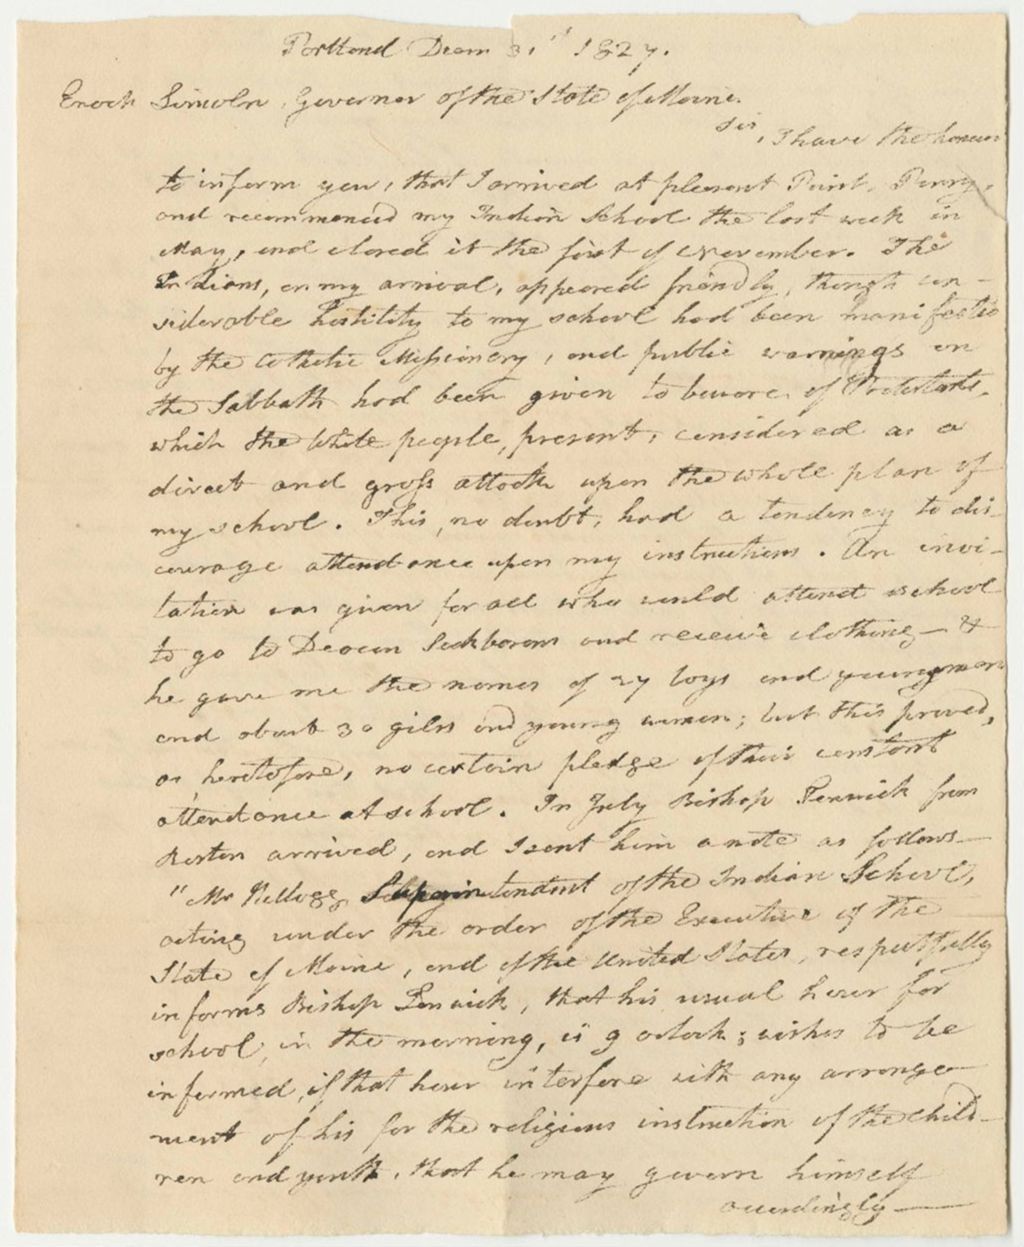 Portland Decm 31st 1827.
Enoch Lincoln, Governor of the State of Maine.
Sir, I have the honour
to inform you, that I arrived at pleasant Point, Perry,
and recommenced my Indian School the last week in
May, and closed it the first of November. The
Indians, on my arrival, appeared friendly, though con-
siderable hostility to my school had been manifested
by the Catholic Missionary, and public warnings on
the Sabbath had been given to beware of Protestants,
which the white people, present, considered as a
direct and gross attack upon the whole plan of
my school. This, no doubt, had a tendency to dis-
courage attendance upon my instructions. An invi-
tation was given for all who would attend school
to go to Deacon and receive clothing — &
he gave me the names of 27 boys and young men
and about 30 girls and young women; but this proved,
as heretofore, no certain pledge of their constant
attendance at school. In July Bishop Fenwick from
Boston arrived, and I sent him a note as follows —
" Mr Kellogg, Superintendent of the Indian School,
acting under the order of the Executive of the
State of Maine, and of the United States, respectfully
informs Bishop Fenwick, that his usual hour for
school, in the morning, is 9 oclock; wishes to be
informed, if that hour interfere with any arrange-
ment of his for the religious instruction of the child-
ren and youth, that he may govern himself
accordingly —